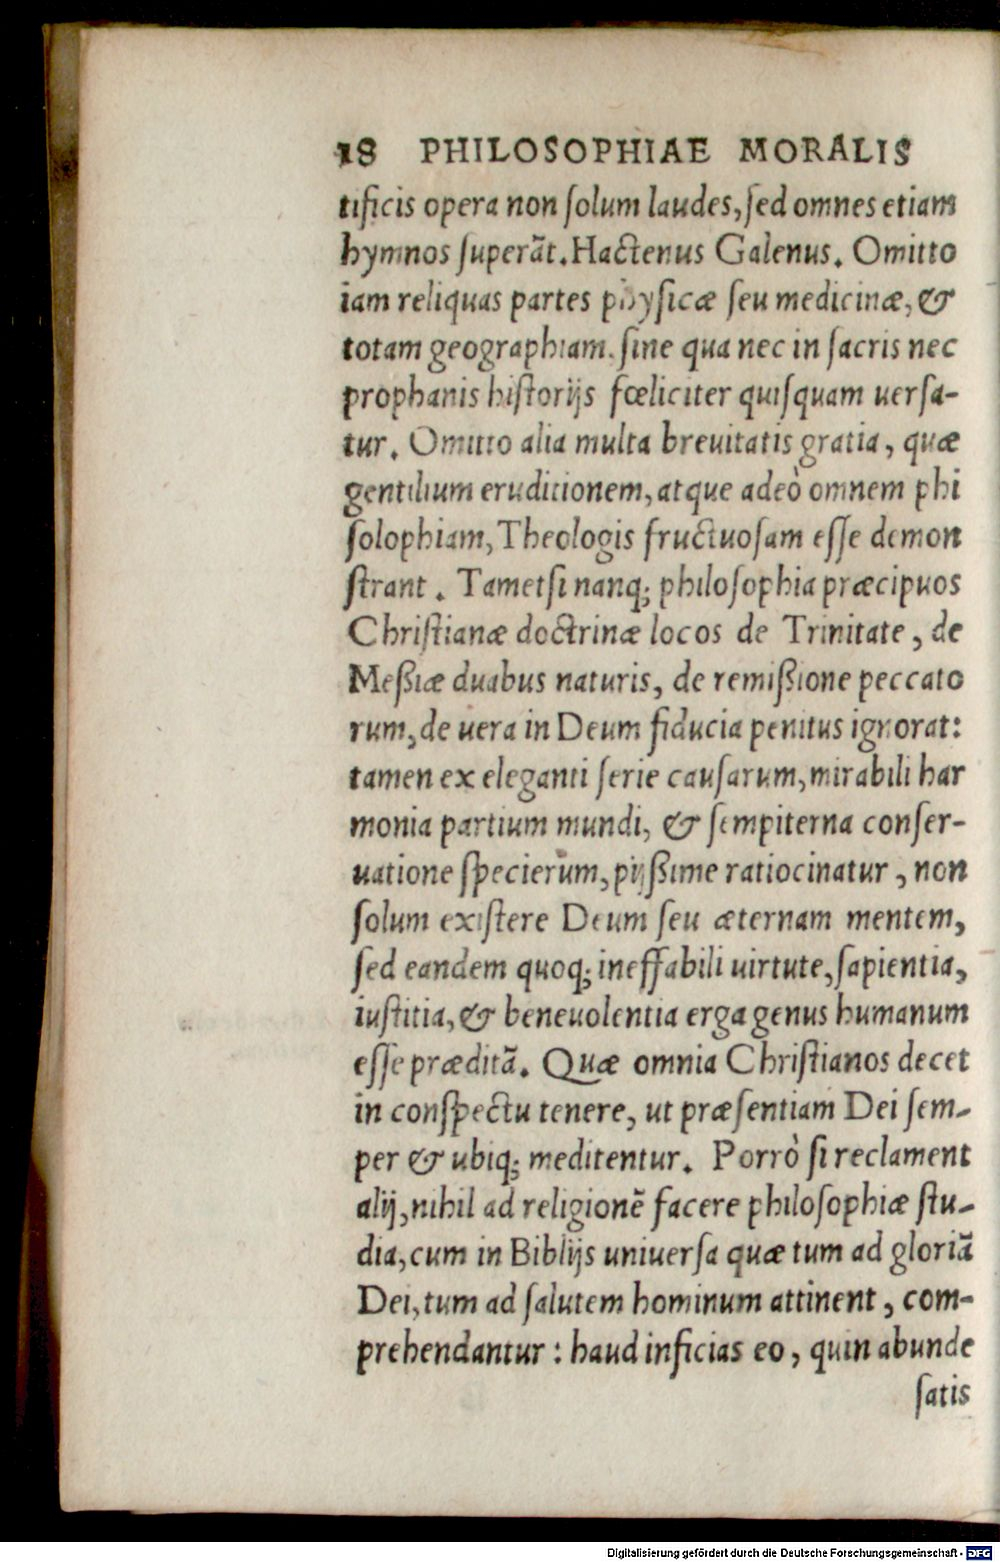 18 PHILOSOPHIAE MORALIS
tificis opera non ſolum laudes, ſed omnes etiam
hymnos ſuperāt. Hactenus Galenus. Omitto
iam reliquas partes phyſicæ ſeu medicinæ, &
totam geographiam. ſine qua nec in ſacris nec
prophanis hiſtorijs fœliciter quiſquam uerſa-
tur. Omitto alia multa breuitatis gratia, quæ
gentilium eruditionem, atque adeò omnem phi
ſoſophiam, Theologis fructuoſam eſſe demon
ſtrant. Tametſi nanq; philoſophia præcipuos
Chriſtianæ doctrinæ locos de Trinitate, de
Meßiæ duabus naturis, de remißione peccato
rum, de uera in Deum fiducia penitus ignorat:
tamen ex eleganti ſerie cauſarum, mirabili har
monia partium mundi, & ſempiterna conſer-
uatione ſpecierum, pijßime ratiocinatur, non
ſolum exiſtere Deum ſeu æternam mentem,
ſed eandem quoq; ineffabili uirtute, ſapientia,
iuſtitia, & beneuolentia erga genus humanum
eſſe præditā. Quæ omnia Chriſtianos decet
in conſpectu tenere, ut præſentiam Dei ſem-
per & ubiq; meditentur. Porrò ſi reclament
alij, nihil ad religionē facere philoſophiæ ſtu-
dia, cum in Biblijs uniuerſa quæ tum ad gloriā
Dei, tum ad ſalutem hominum attinent, com-
prehendantur: haud inficias eo, quin abunde
ſatis
Digitalisierung gefördert durch die Deutsche Forschungsgemeinschaft - DFG